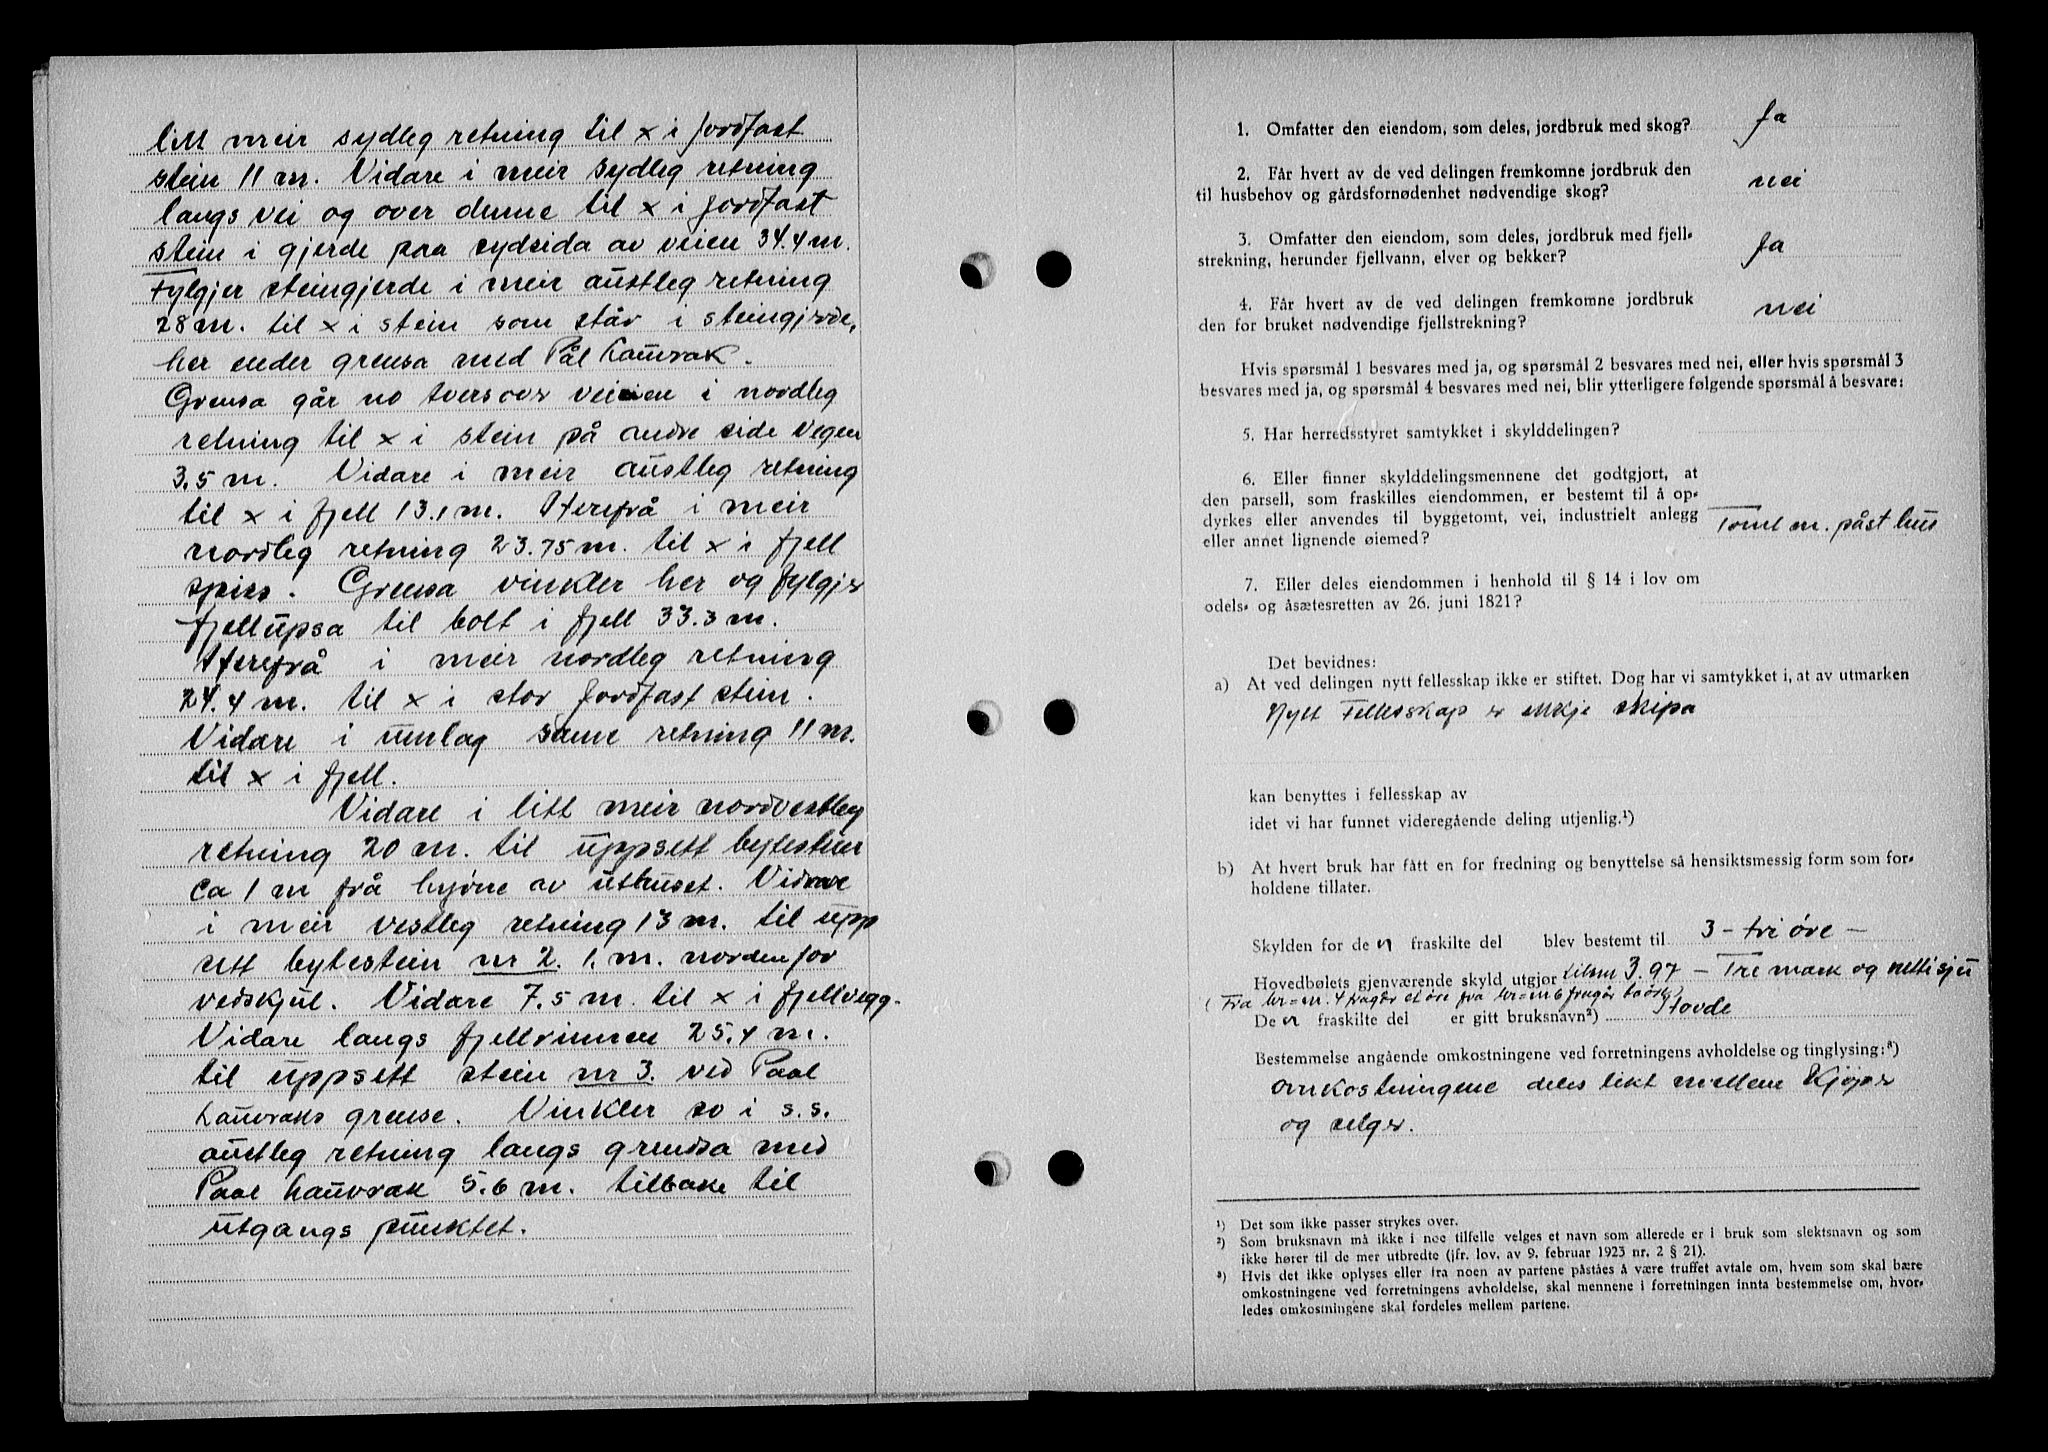 litt meir sydleg retning til x i jordfast
stein 11 m. Vidare i meir sydleg retning
langs vei og over denne til x i jordfast
stein i gjerde paa sydsida av veien 34.4 m.
Fylgjer steingjerde i meir austleg retning
28 m. til x i stein som står i steingjerde,
her ender grensa med Pål Lauvrak.
Grensa går no tversover veien i nordleg
retning til x i stein på andre side vegen
3.5 m. Vidare i meir austleg retning
til x i fjell 13.1 m. Herefrå i meir
nordleg retning 23.75 m. til x i fjell
spiss. Grensa vinkler her og fylgjer
fjellupsa til bolt i fjell 33.3 m.
Herefrå i meir nordleg retning
24.4 m. til x i stor jordfast stein.
Vidare i umlag same retning 11 m.
til x i fjell.
Vidare i litt meir nordvestleg
retning 20 m. til uppsett bytestein
ca 1 m frå hyørne av uthuset. Vidare
i meir vestleg retning 13 m. til upp
sett bytestein nr 2. 1. m. nordenfor
vedskjul. Vidare 7.5 m. til x i fjellvegg.
Vidare langs fjellrinnen 25.4 m.
til uppsett stein nr 3. ved Paal
Lauvraks grense. Vinkler so i s.s.
austleg retning langs grensa med
Paal Lauvrak 5.6 m. tilbake til
utgangs punktet.
1. Omfatter den eiendom, som deles, jordbruk med skog? Ja
2. Får hvert av de ved delingen fremkomne jordbruk den
til husbehov og gårdsfornødenhet nødvendige skog? nei
3. Omfatter den eiendom, som deles, jordbruk med fjell-
strekning, herunder fjellvann, elver og bekker? Ja
4. Får hvert av de ved delingen fremkomne jordbruk
den for bruket nødvendige fjellstrekning? nei
Hvis spørsmål 1 besvares med ja, og spørsmål 2 besvares med nei, eller hvis spørsmål 3
besvares med ja, og spørsmål 4 besvares med nei, blir ytterligere følgende spørsmål å besvare:
5. Har herredsstyret samtykket i skylddelingen?
6. Eller finner skylddelingsmennene det godtgjort, at
den parsell, som fraskilles eiendommen, er bestemt til å op-
dyrkes eller anvendes til byggetomt, vei, industrielt anlegg
eller annet lignende øiemed? Tomt m. påst hus
7. Eller deles eiendommen i henhold til § 14 i lov om
odels- og åsætesretten av 26. juni 1821?
Det bevidnes:
a) At ved delingen nytt fellesskap ikke er stiftet. Dog har vi samtykket i, at av utmarken
Nytt Fellesskap er ikkje skipa
kan benyttes i fellesskap av
idet vi har funnet videregående deling utjenlig.¹)
b) At hvert bruk har fått en for fredning og benyttelse så hensiktsmessig form som for-
holdene tillater.
Skylden for de n fraskilte del blev bestemt til 3 - tri øre -
Hovedbølets gjenværende skyld utgjør tilsm 3.97 - Tre mark og nittisju
(Fra br=nr. 4 fragår et øre fra br=nr 6 fragår to øre)
De n fraskilte del er gitt bruksnavn²) Hovde
Bestemmelse angående omkostningene ved forretningens avholdelse og tinglysing:³)
omkostningene deles likt mellem Kjøper
og selger.
¹) Det som ikke passer strykes over.
²) Som bruksnavn må ikke i noe tilfelle velges et navn som allerede er i bruk som slektsnavn og som
ikke hører til de mer utbredte (jfr. lov. av 9. februar 1923 nr. 2 § 21).
³) Hvis det ikke oplyses eller fra noen av partene påståes å være truffet avtale om, hvem som skal bære
omkostningene ved forretningens avholdelse, skal mennene i forretningen innta bestemmelse om, hvor-
ledes omkostningene skal fordeles mellem partene.